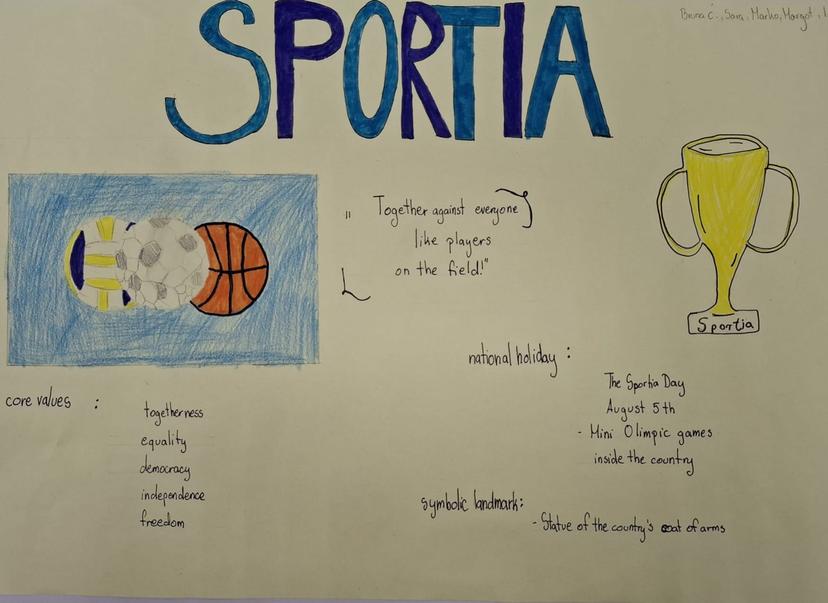 SPORTIA
Bruna Ć., Sara, Marko, Margot, I
" Together against everyone
like players
on the field!"
Sportia
national holiday :
The Sportia Day
August 5th
- Mini Olimpic games
inside the country
core values :
togetherness
equality
democracy
independence
freedom
symbolic landmark:
- Statue of the country's coat of arms